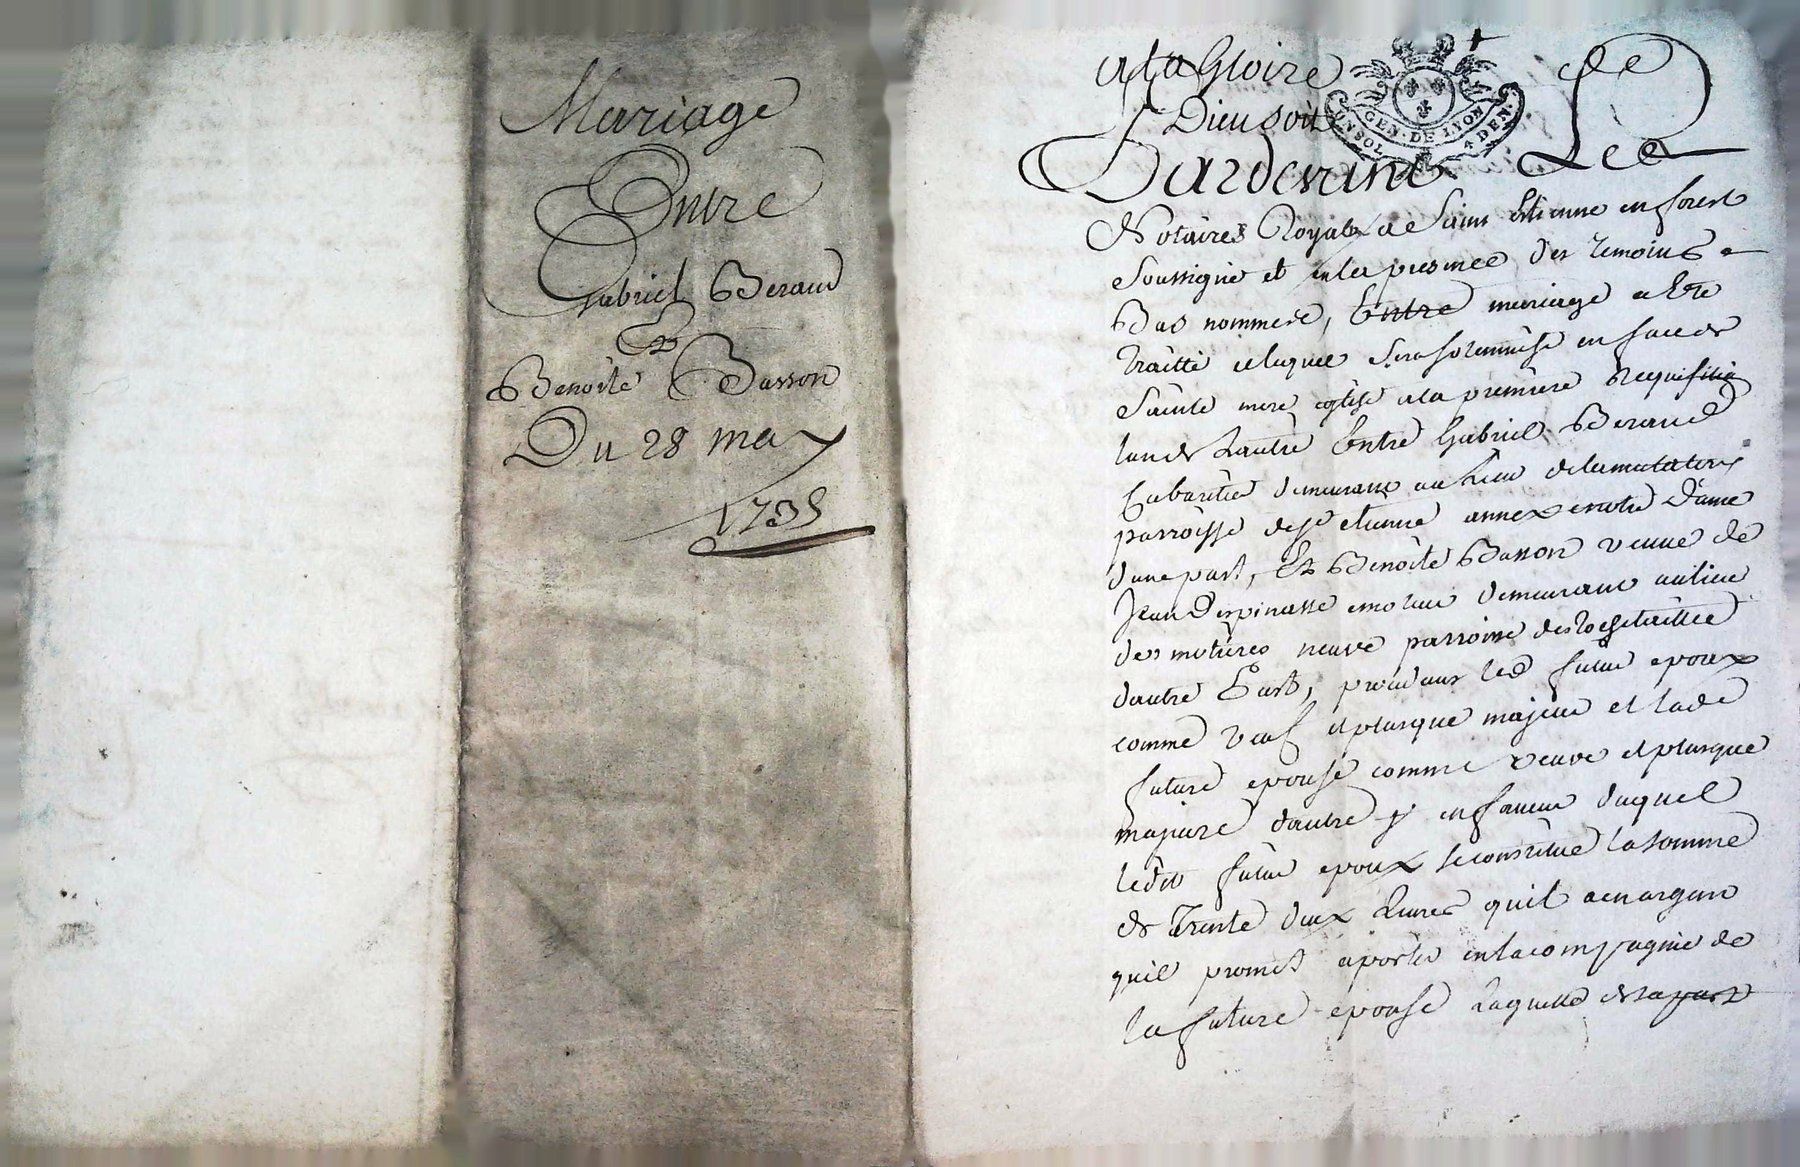 Mariage
Entre
Gabriel Beraud
Et
Benoite Basson
Du 28 may
1735
a la Gloire de
Dieu soit
GEN. DE LYON
4 DEN.
Pardevant Le
Notaires Royal de Saint Etienne en forest
Soussigné et en la presence des temoins
Bas nommere, Entre mariage a Ete
traitté et lequel sera solemnisé en face de
Sainte mere eglise a la premiere Requisition
lun de Lautre Entre Gabriel Beraud
Cabaretier demeurant au Lieu de la
parroisse de St etienne annexe notre Dame
dune part, Et Benoite Basson veuve de
Jean Despinasse demeurant au lieu
des neuve parroisse de Rochetaillée
dautre Part, procedant led futur epoux
comme veuf et plusque majeur et lade
future epouse comme veuve et plusque
majeure dautre en faveur duquel
ledit futur epoux se constitue la somme
de Trente deux Livres quil a en argent
quil promet aporter en la compagnie de
la future epouse Laquelle de sa part